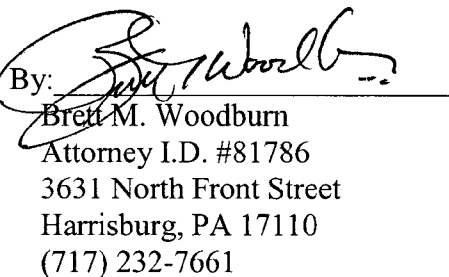 By:
Brett M. Woodburn
Attorney I.D. #81786
3631 North Front Street
Harrisburg, PA 17110
(717) 232-7661